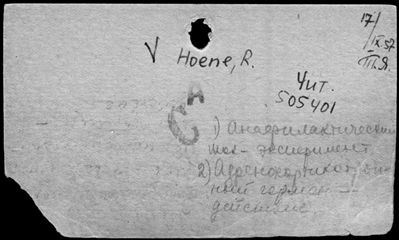 17/
IX.57
V Hoene, R.
П.Я.
Чит.
505401
А
С
1) Анафилактический
шок - эксперимент
2) Адренокортикотроп
ный гормон -
действие